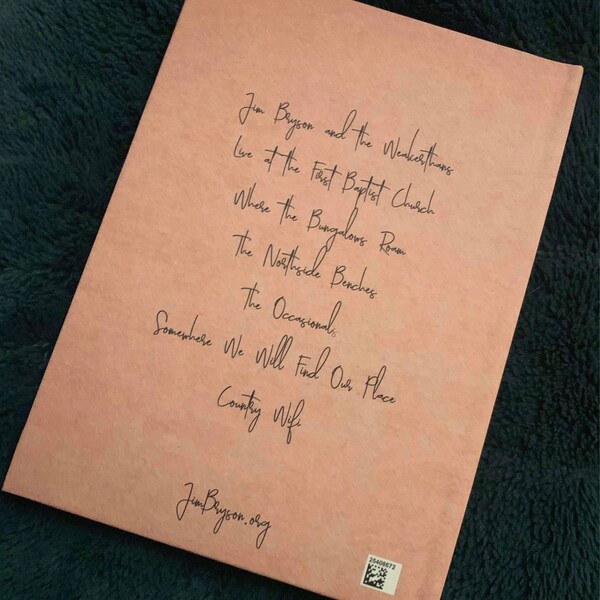 Jim Bryson and the Weakerthans
Live at the First Baptist Church
Where the Bungalows Roam
The Northside Benches
The Occasionals
Somewhere We Will Find Our Place
Country Wifi
JimBryson.org
26408672